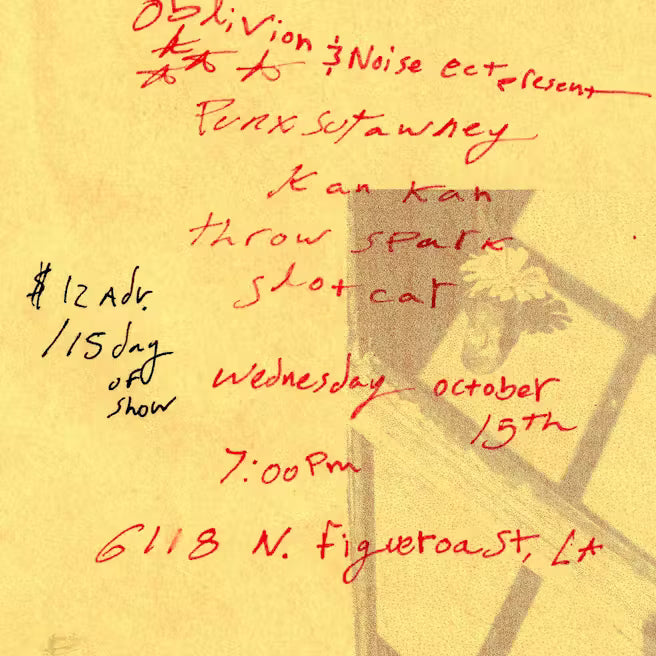 Oblivion
& Noise ect present
Punxsutawney
Kan Kan
throw spark
slot car
$12 Adv.
/15 day
of
show
Wednesday october
15th
7:00 Pm
6118 N. figueroa St, LA